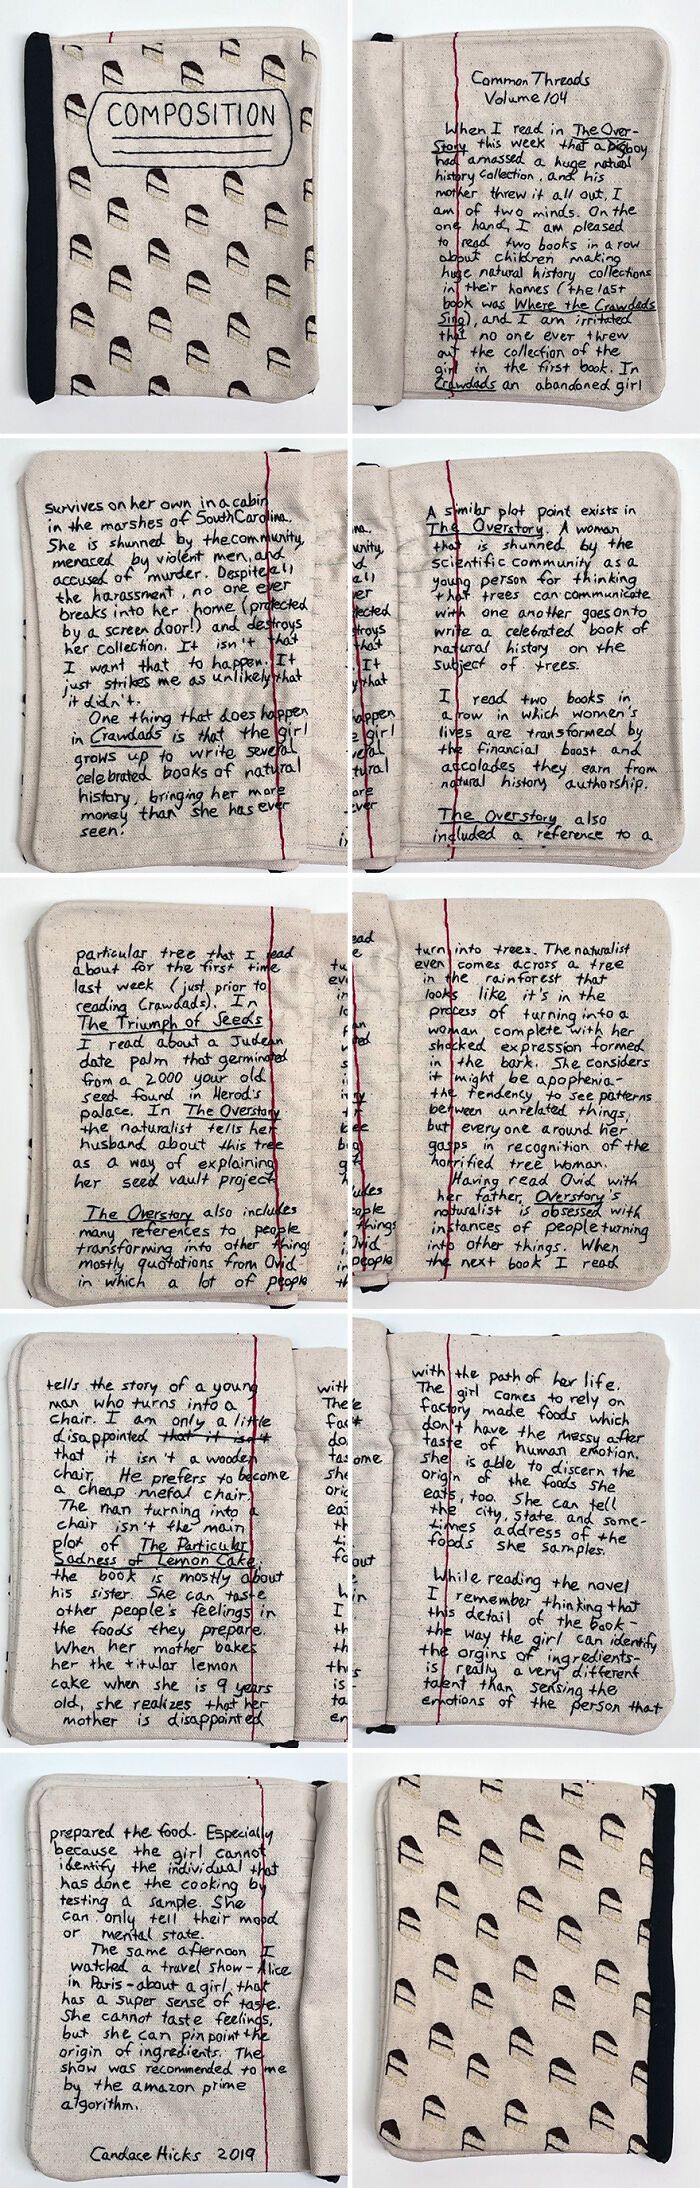 COMPOSITION
Common Threads
Volume 104
When I read in The Over-
Story this week that a boy
had amassed a huge natural
history collection, and his
mother threw it all out, I
am of two minds. On the
one hand, I am pleased
to read two books in a row
about children making
huge natural history collections
in their homes (the last
book was Where the Crawdads
Sing), and I am irritated
that no one ever threw
out the collection of the
girl in the first book. In
Crawdads an abandoned girl
survives on her own in a cabin
in the marshes of South Carolina.
She is shunned by the community,
menaced by violent men, and
accused of murder. Despite all
the harassment, no one ever
breaks into her home (protected
by a screen door!) and destroys
her collection. It isn't that
I want that to happen. It
just strikes me as unlikely that
it didn't.
One thing that does happen
in Crawdads is that the girl
grows up to write several
celebrated books of natural
history, bringing her more
money than she has ever
seen.
A similar plot point exists in
The Overstory. A woman
that is shunned by the
scientific community as a
young person for thinking
that trees can communicate
with one another goes on to
write a celebrated book of
natural history on the
subject of trees.
I read two books in
a row in which women's
lives are transformed by
the financial boost and
accolades they earn from
natural history authorship.
The Overstory also
included a reference to a
particular tree that I read
about for the first time
last week (just prior to
reading Crawdads). In
The Triumph of Seeds
I read about a Judean
date palm that germinated
from a 2000 your old
seed found in Herod's
palace. In The Overstory
the naturalist tells her
husband about this tree
as a way of explaining
her seed vault project.
The Overstory also includes
many references to people
transforming into other things
mostly quotations from Ovid
in which a lot of people
turn into trees. The naturalist
even comes across a tree
in the rainforest that
looks like it's in the
process of turning into a
woman complete with her
shocked expression formed
in the bark. She considers
it might be apophenia-
the tendency to see patterns
between unrelated things,
but everyone around her
gasps in recognition of the
horrified tree woman.
Having read Ovid with
her father, Overstory's
naturalist is obsessed with
instances of people turning
into other things. When
the next book I read
tells the story of a young
man who turns into a
chair. I am only a little
disappointed that it isn't
that it isn't a wooden
chair. He prefers to become
a cheap metal chair.
The man turning into a
chair isn't the main
plot of The Particular
Sadness of Lemon Cake;
the book is mostly about
his sister. She can taste
other people's feelings in
the foods they prepare.
When her mother bakes
her the titular lemon
cake when she is 9 years
old, she realizes that her
mother is disappointed
with the path of her life.
The girl comes to rely on
factory made foods which
don't have the messy after
taste of human emotion.
She is able to discern the
origin of the foods she
eats, too. She can tell
the city, state and some-
times address of the
foods she samples.
While reading the novel
I remember thinking that
this detail of the book-
the way the girl can identify
the orgins of ingredients-
is really a very different
talent than sensing the
emotions of the person that
prepared the food. Especially
because the girl cannot
identify the individual that
has done the cooking by
testing a sample. She
can only tell their mood
or mental state.
The same afternoon I
watched a travel show-Alice
in Paris-about a girl that
has a super sense of taste.
She cannot taste feelings,
but she can pinpoint the
origin of ingredients. The
show was recommended to me
by the amazon prime
algorithm.
Candace Hicks 2019